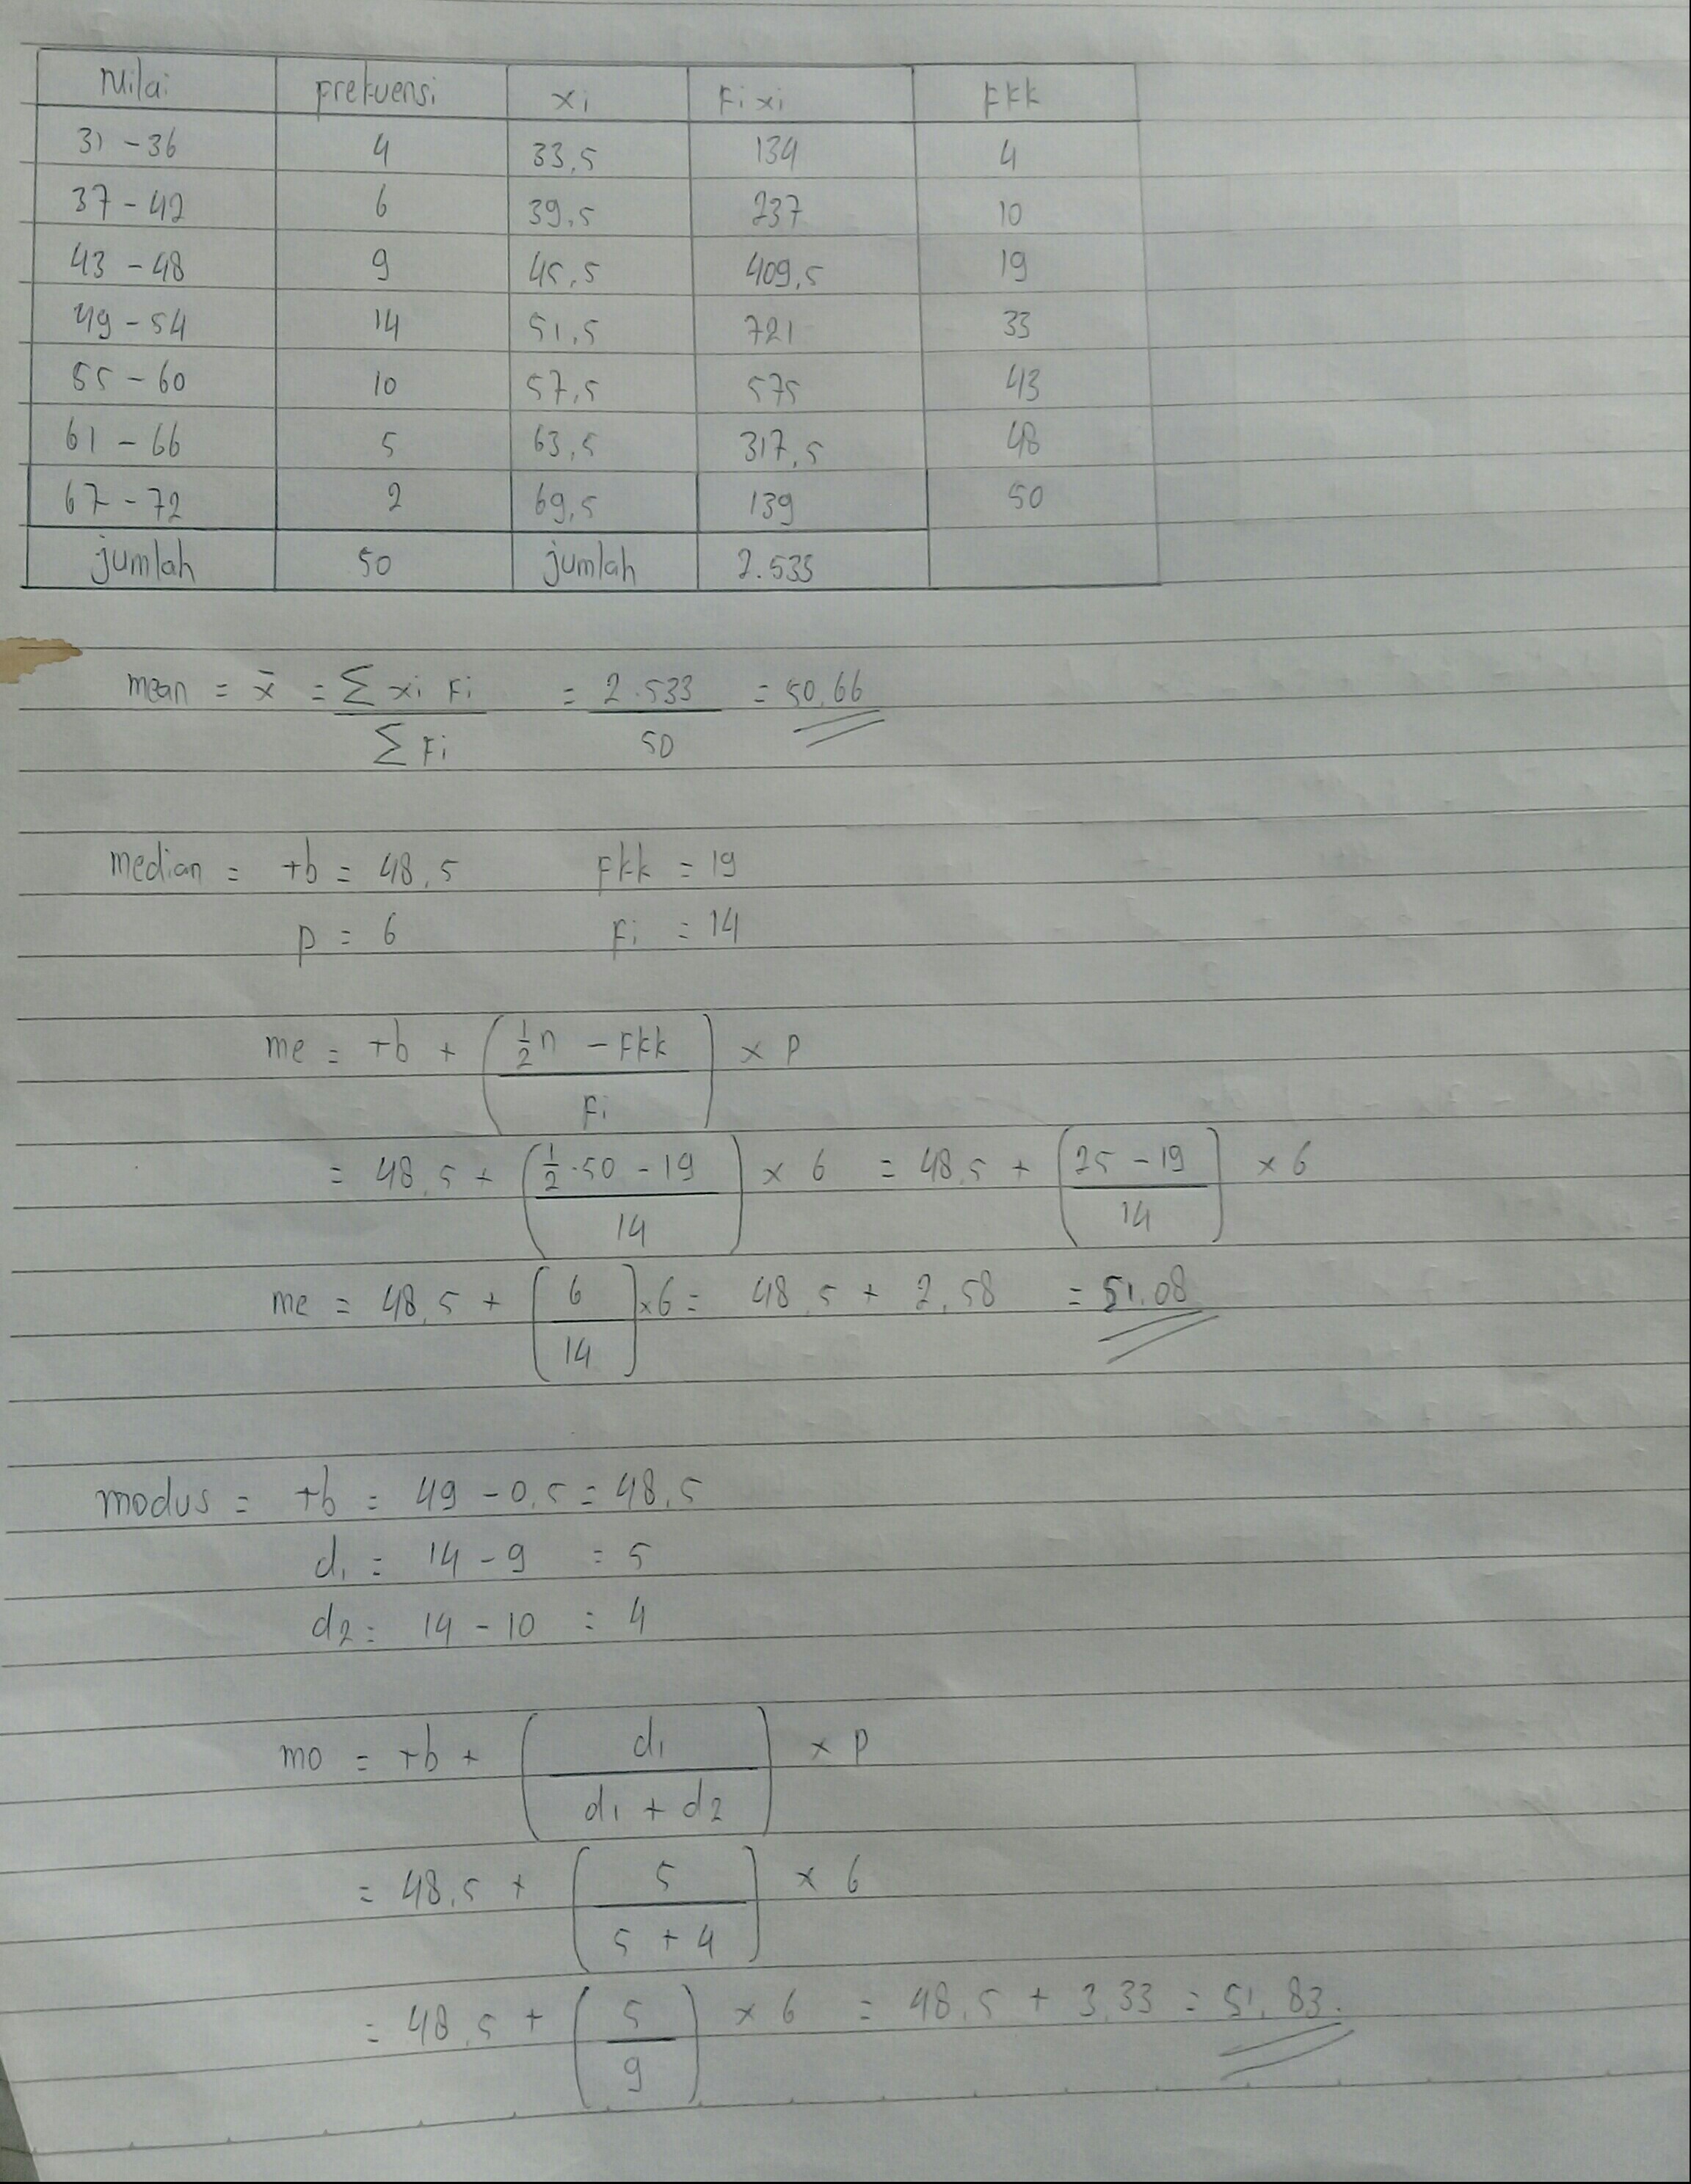 Nilai Frekuensi xi Fi xi Fkk
31 - 36 4 33,5 134 4
37 - 42 6 39,5 237 10
43 - 48 9 45,5 409,5 19
49 - 54 14 51,5 721 33
55 - 60 10 57,5 575 43
61 - 66 5 63,5 317,5 48
67 - 72 2 69,5 139 50
jumlah 50 jumlah 2.533
mean = x̄ = ∑ xi Fi / ∑ Fi = 2.533 / 50 = 50,66
median = tb = 48,5 Fkk = 19
p = 6 Fi = 14
me = tb + (½n - Fkk / Fi) x p
= 48,5 + (½·50 - 19 / 14) x 6 = 48,5 + (25 - 19 / 14) x 6
me = 48,5 + (6 / 14) x 6 = 48,5 + 2,58 = 51,08
modus = tb = 49 - 0,5 = 48,5
d1 = 14 - 9 = 5
d2 = 14 - 10 = 4
mo = tb + (d1 / d1 + d2) x p
= 48,5 + (5 / 5 + 4) x 6
= 48,5 + (5 / 9) x 6 = 48,5 + 3,33 = 51,83.